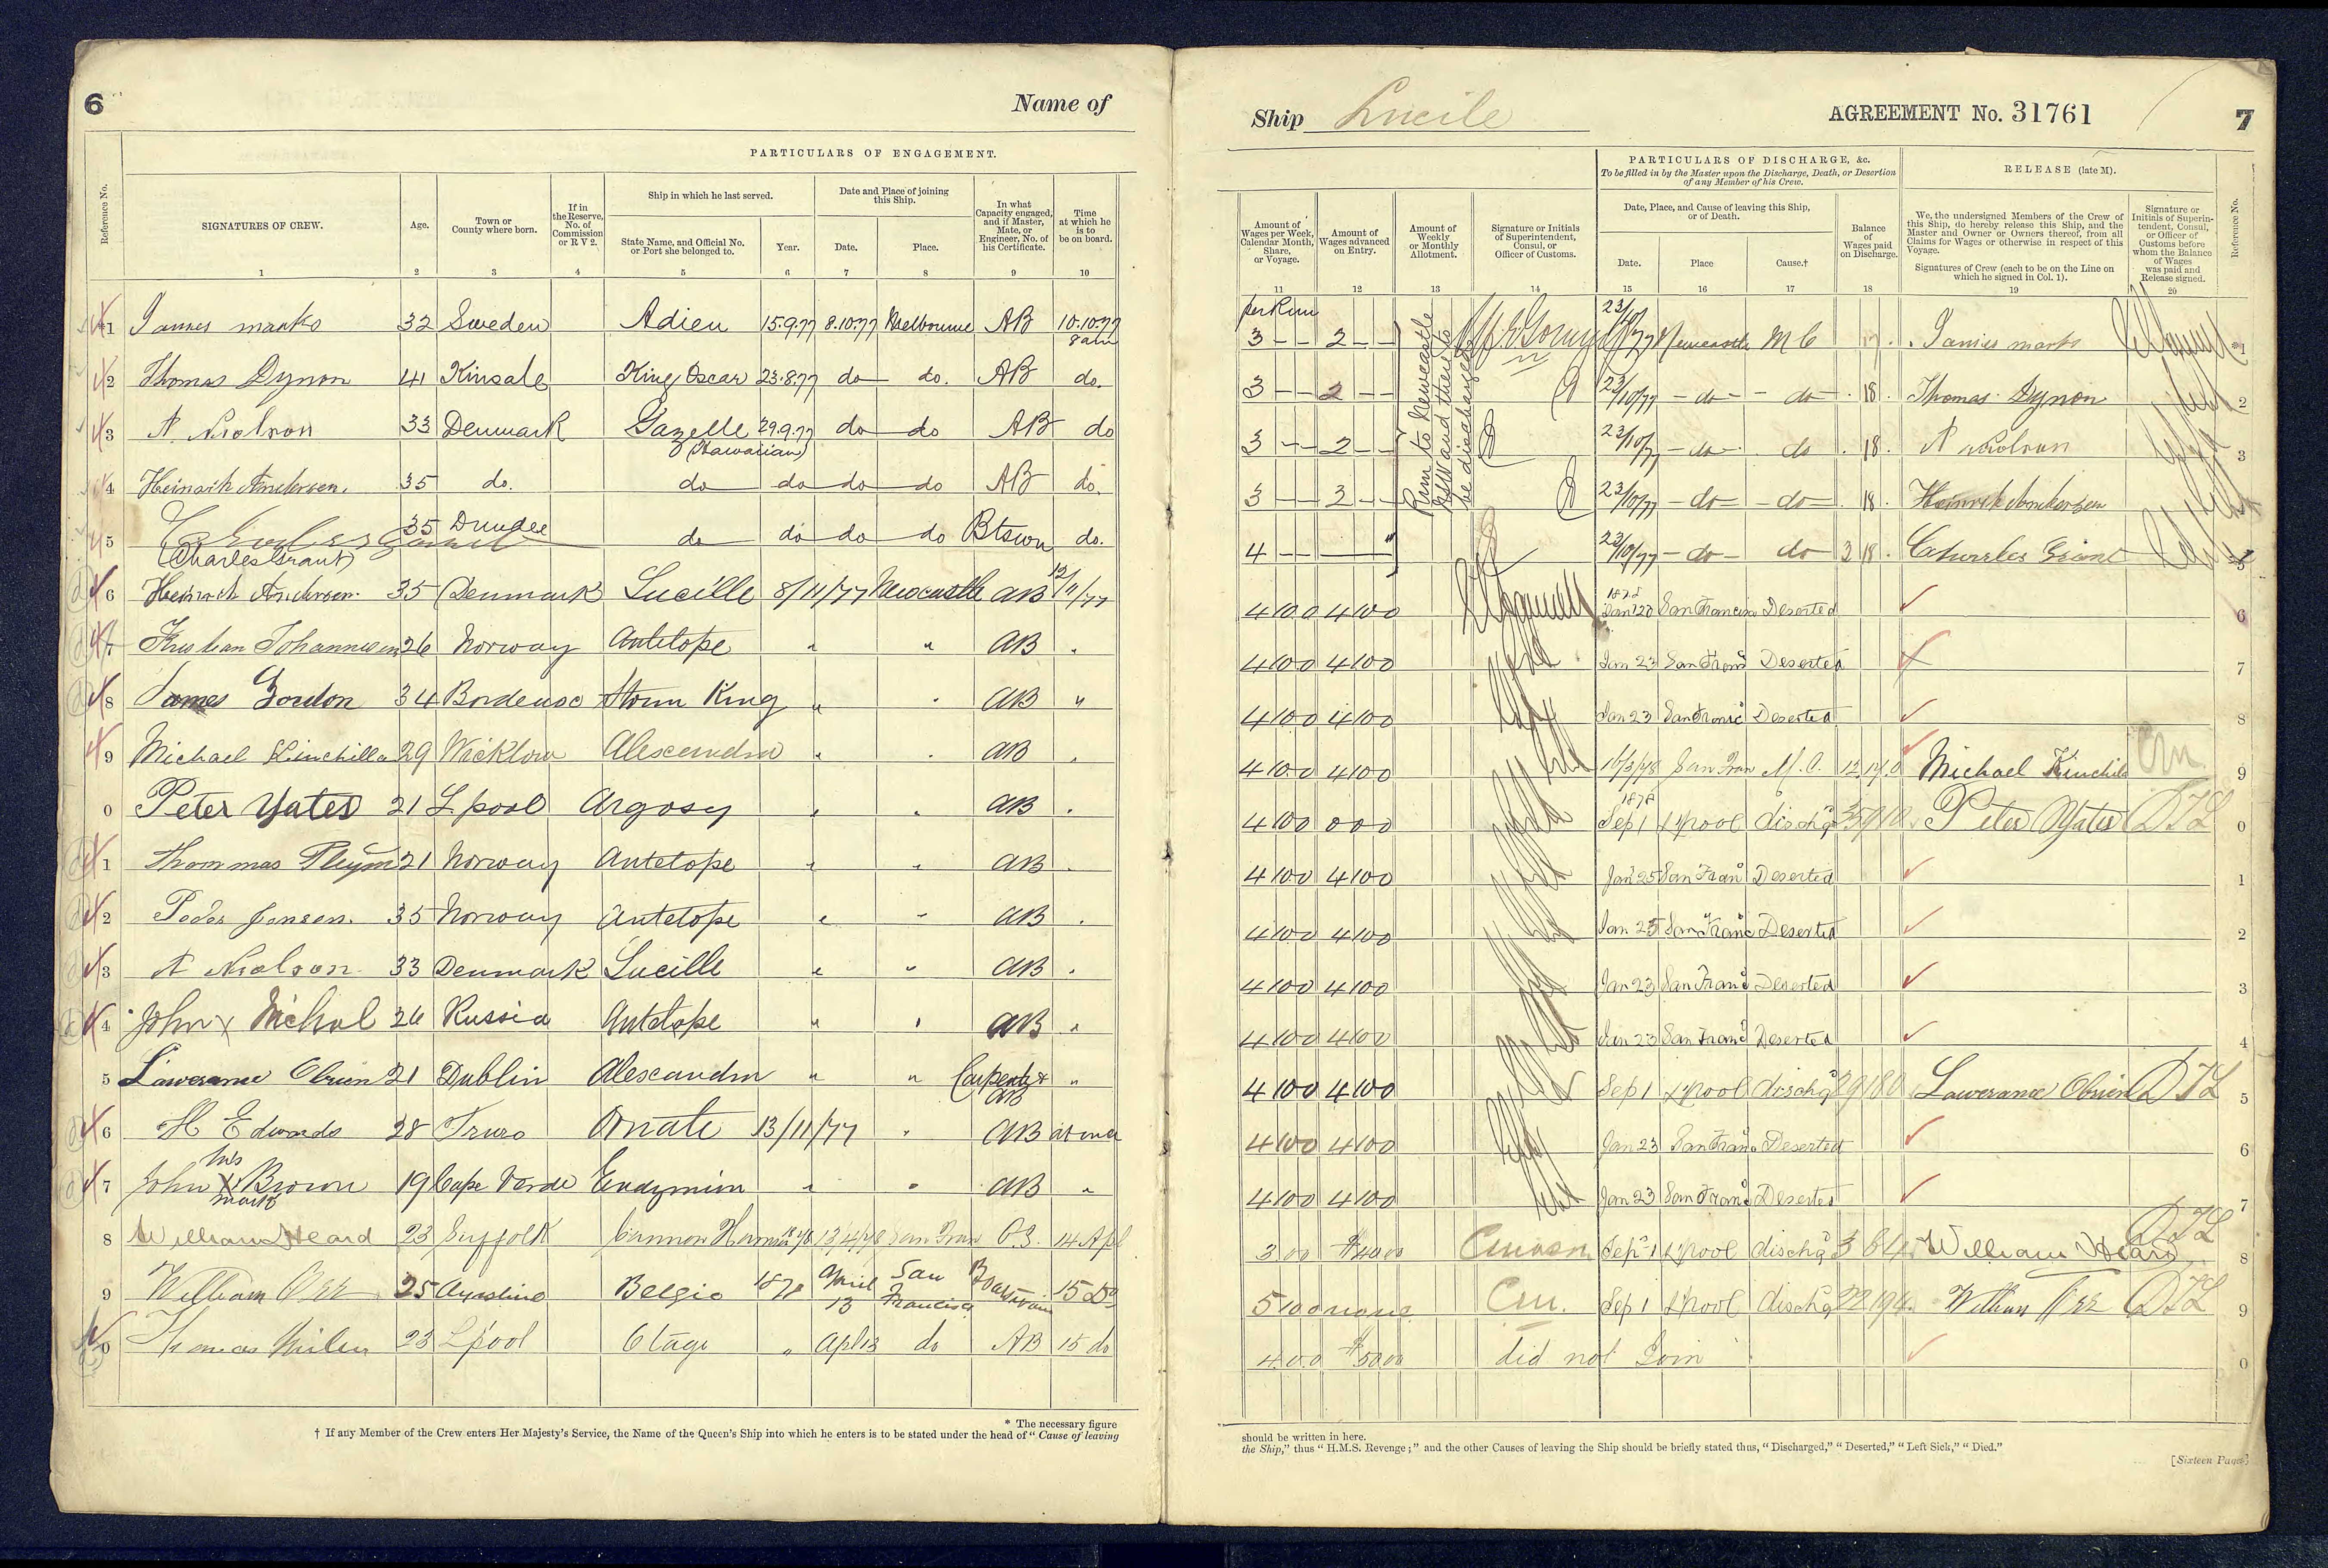 6 Name of
PARTICULARS OF ENGAGEMENT.
Reference No.
SIGNATURES OF CREW.
Age.
Town or
County where born.
If in
the Reserve,
No. of
Commission
or R V 2.
Ship in which he last served.
State Name, and Official No.
or Port she belonged to.
Year.
Date and Place of joining
this Ship.
Date.
Place.
In what
Capacity engaged,
and if Master,
Mate, or
Engineer, No. of
his Certificate.
Time
at which he
is to
be on board.
1 2 3 4 5 6 7 8 9 10
1 James marks 32 Sweden Adieu 15.9.77 8.10.77 Melbourne AB 10.10.77
8 am
2 Thomas Dynon 41 Kinsale King Oscar 23.8.77 do do. AB do.
3 33 Denmark Gazelle 29.9.77 do do AB do
(Hawaiian)
4 35 do. do do do do AB do.
5 35 Dundee do do do do Btswn do.
(Charles Grant)
6 35 Denmark Lucille 8/11/77 Newcastle AB 12/11/77
7 26 Norway Antelope " " AB "
8 James Gordon 34 Storm King " " AB "
9 Michael 29 Wicklow Alexandra " " AB "
0 Peter Yates 21 L.pool Argosy " " AB "
1 Thommas 21 Norway Antelope " " AB "
2 Peder Jensen. 35 Norway Antelope " " AB "
3 33 Denmark Lucille " " AB "
4 John x Nichol 26 Russia Antelope " " AB "
5 Lawerance Obrien 21 Dublin Alexandra " " Carpenter "
AB
6 H Edwards 28 Truro 13/11/77 " AB at once
his
7 John x Brown 19 Cape Verde Endymion " " AB "
mark
8 William Heard 23 Suffolk 1878 13/4/78 San Fran O.S. 14 Apl
9 William Orr 25 Belgic 1878 April 13 San Francisco Boatswain 15 Do
0 Thomas 23 Lpool Otago " Apl 13 do AB 15 do
* The necessary figure
† If any Member of the Crew enters Her Majesty's Service, the Name of the Queen's Ship into which he enters is to be stated under the head of " Cause of leaving
Ship Lucile AGREEMENT No. 31761 7
Amount of
Wages per Week,
Calendar Month,
Share,
or Voyage.
Amount of
Wages advanced
on Entry.
Amount of
Weekly
or Monthly
Allotment.
Signature or Initials
of Superintendent,
Consul, or
Officer of Customs.
PARTICULARS OF DISCHARGE, &c.
To be filled in by the Master upon the Discharge, Death, or Desertion
of any Member of his Crew.
Date, Place, and Cause of leaving this Ship,
or of Death.
Date.
Place
Cause.†
Balance
of
Wages paid
on Discharge.
RELEASE (late M).
We, the undersigned Members of the Crew of
this Ship, do hereby release this Ship, and the
Master and Owner or Owners thereof, from all
Claims for Wages or otherwise in respect of this
Voyage.
Signatures of Crew (each to be on the Line on
which he signed in Col. 1).
Signature or
Initials of Superin-
tendent, Consul,
or Officer of
Customs before
whom the Balance
of Wages
was paid and
Release signed.
Reference No.
11 12 13 14 15 16 17 18 19 20
per Run
Run to Newcastle
NSW and there to
be discharged
3 - - 2 - - 23/10/77 Newcastle M C James marks 1
3 - - 2 - - 23/10/77 - do - - do - 18. Thomas Dynon 2
3 - - 2 - - 23/10/77 - do - do 18. 3
3 - - 2 - - 23/10/77 - do - - do - 18.
4 - - 23/10/77 - do - do 3 18. Charles Grant 5
4 10 0 4 10 0 1878 San Francisco Deserted 6
4 10 0 4 10 0 Jan 23 San Franco Deserted 7
4 10 0 4 10 0 Jan 23 San Franco Deserted 8
4 10 0 4 10 0 16/3/78 San Fran M.C. Michael Cm. 9
4 10 0 0 0 0 1878 Sep 1 L'pool dischgd Peter Yates DTL 0
4 10 0 4 10 0 Jan 25 San Franco Deserted 1
4 10 0 4 10 0 Jan 25 San Franco Deserted 2
4 10 0 4 10 0 Jan 23 San Franco Deserted 3
4 10 0 4 10 0 Jan 23 San Franco Deserted 4
4 10 0 4 10 0 Sep 1 L'pool dischgd 29 18 0 Lawerance Obrien DTL 5
4 10 0 4 10 0 Jan 23 San Franco Deserted 6
4 10 0 4 10 0 Jan 23 San Franco Deserted 7
3 0 0 $40 00 Sep 1 L'pool dischgd William Heard DTL 8
5 10 0 none Cm. Sep 1 L'pool dischgd 22 19 4 William Orr DTL 9
4.0.0 $50 00 did not Join 0
should be written in here.
the Ship," thus " H.M.S. Revenge ;" and the other Causes of leaving the Ship should be briefly stated thus, " Discharged," " Deserted," " Left Sick," " Died."
[Sixteen Pages]